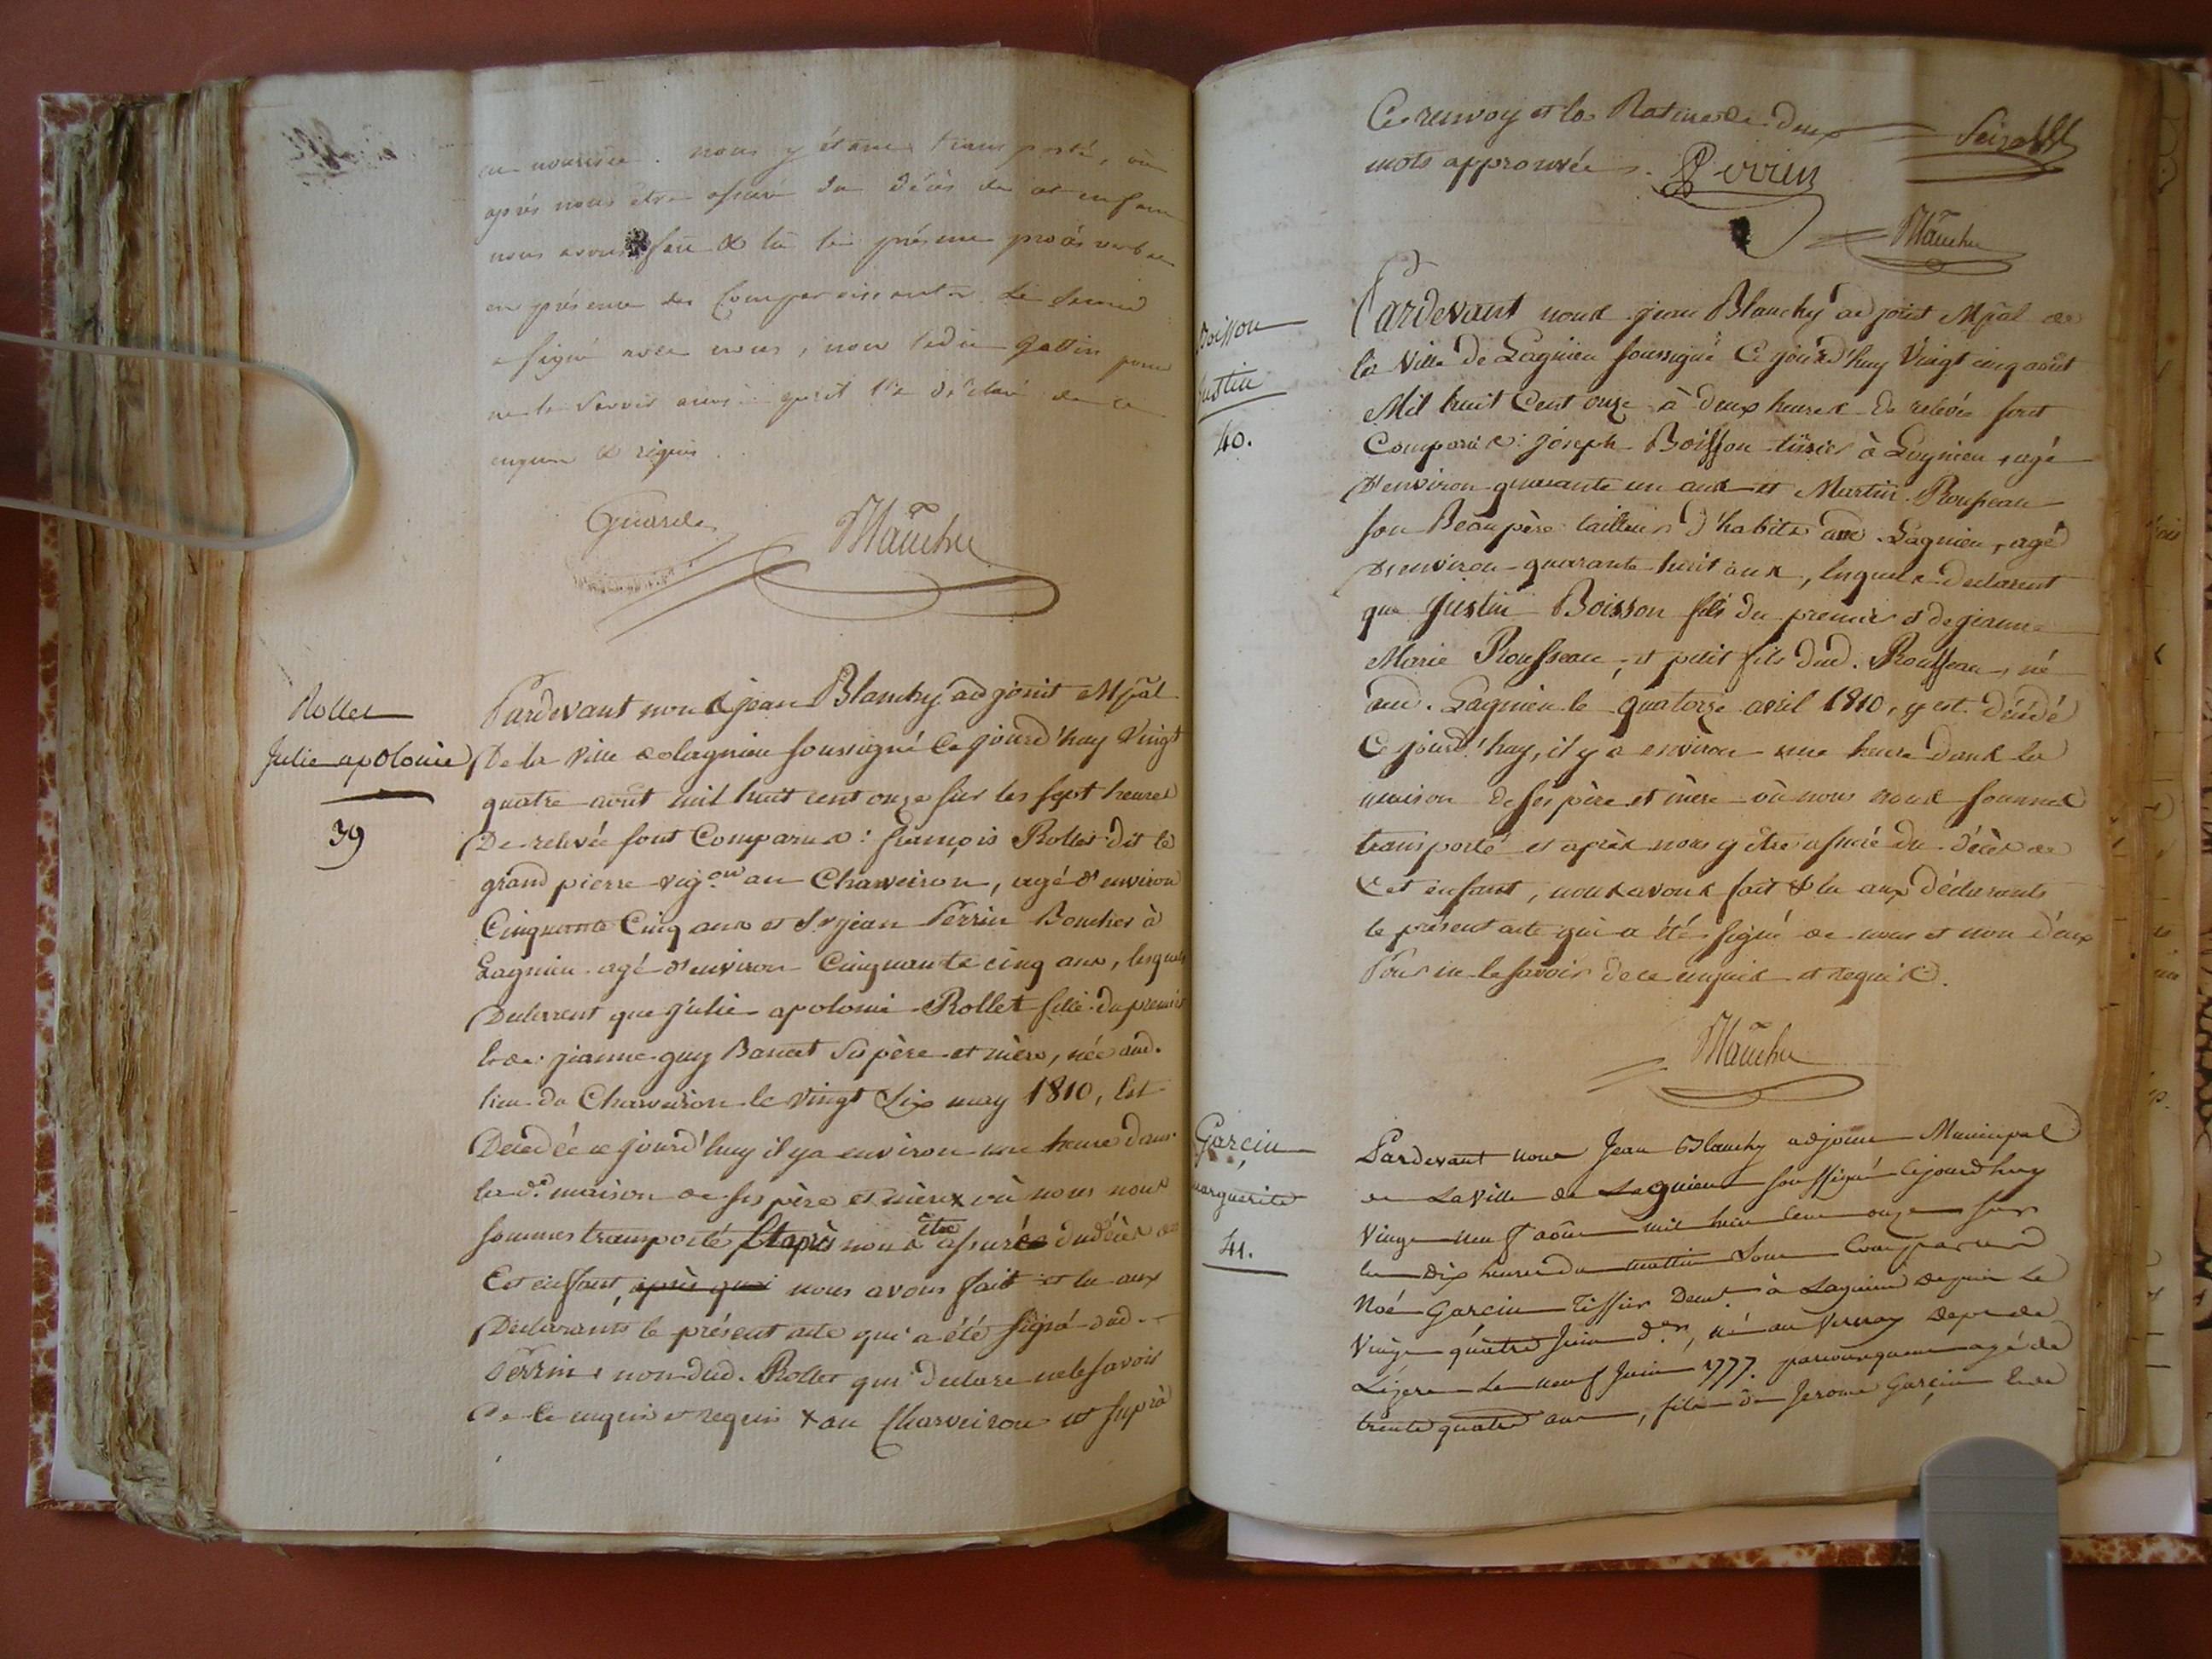 en nourrice. nous y étant transporté, où
après nous être assuré du décès de cet enfant
nous avons fait & lu le présent procès verbal
en présence des Comparaissants. Le second
a signé avec nous, non ledit Gattin pour
ne le Savoir ainsi qu'il l'a déclaré de ce
enquis & requis.
Rollet
Julie apolonie
39
Pardevant nous jean Blanchy adjoint Mpãl
De la ville de lagnieu soussigné Ce jourd'huy Vingt
quatre août mil huit cent onze sur les sept heures
De relevée sont Comparus : françois Rollet dit le
grand pierre vig.on au Charveiron, agé d'environ
Cinquante Cinq ans et Sr jean Perrin Boucher à
Lagnieu agé d'environ Cinquante cinq ans, lesquels
Declarent que julie apolonie Rollet fille du premier
& de jeanne guy Bancet ses père et mère, née aud.
lieu du Charveiron le vingt Six may 1810, Est
Décédée ce jourd'huy il y a environ une heure dans
la d.e maison de ses père et mère x où nous nous
sommes transporté Et après nous être assuré du décès de
Cet enfant, après quoi nous avons fait et lu aux
Déclarants le présent acte qui a été signé dud.
Perrin & non dud. Rollet qui declare ne le savoir
De Ce enquis et requis x au Charveiron ut suprà
Ce renvoy et la Rature de deux
mots approuvés. Perrin
Boisson
Justin
40.
Pardevant nous jean Blanchy adjoint Mpãl de
la Ville de Lagnieu soussigné Ce jourd'huy Vingt cinq août
Mil huit Cent onze à deux heures de relevée sont
Comparus : joseph Boisson tissier à Lagnieu, agé
D'environ quarante un ans et Martin Rousseau
son Beaupère tailleur d'habits aud. Lagnieu, agé
D'environ quarante huit ans, lesquels declarent
que Justin Boisson fils du premier & de jeanne
Marie Rousseau, et petit fils dud. Rousseau, né
aud. Lagnieu le quatorze avril 1810, y est décédé
Ce jourd'huy, il y a environ une heure dans la
maison de ses père et mère où nous nous sommes
transporté et après nous y être assuré du décès de
Cet enfant, nous avons fait & lu aux déclarants
le présent acte qui a été signé de nous et non d'eux
Pour ne le savoir de ce enquis et requis.
Garçin
Marguerite
41.
Pardevant nous Jean Blanchy adjoint Municipal
de La ville de Lagnieu soussigné Cejourd'huy
Vingt neuf août mil huit Cent onze sur
les Dix heures du matin Sont Comparus
Noé Garçin Tissier Demt à Lagnieu Depuis Le
Vingt quatre Juin d.er, né au Vernay Dept de
Lizere Le neuf Juin 1777. par conséquent agé de
trente quatre ans, fils de Jerome Garçin & de